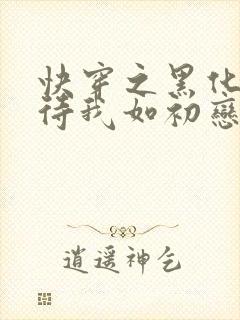 快穿之黑化
待我如初戀
逍遥神乞